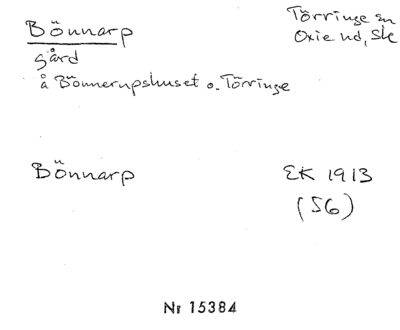 Bönnarp
Törringe sn
Oxie hd, Sk
gård
å Bönnerupshuset o. Törringe
Bönnarp
EK 1913
(56)
Nr 15384